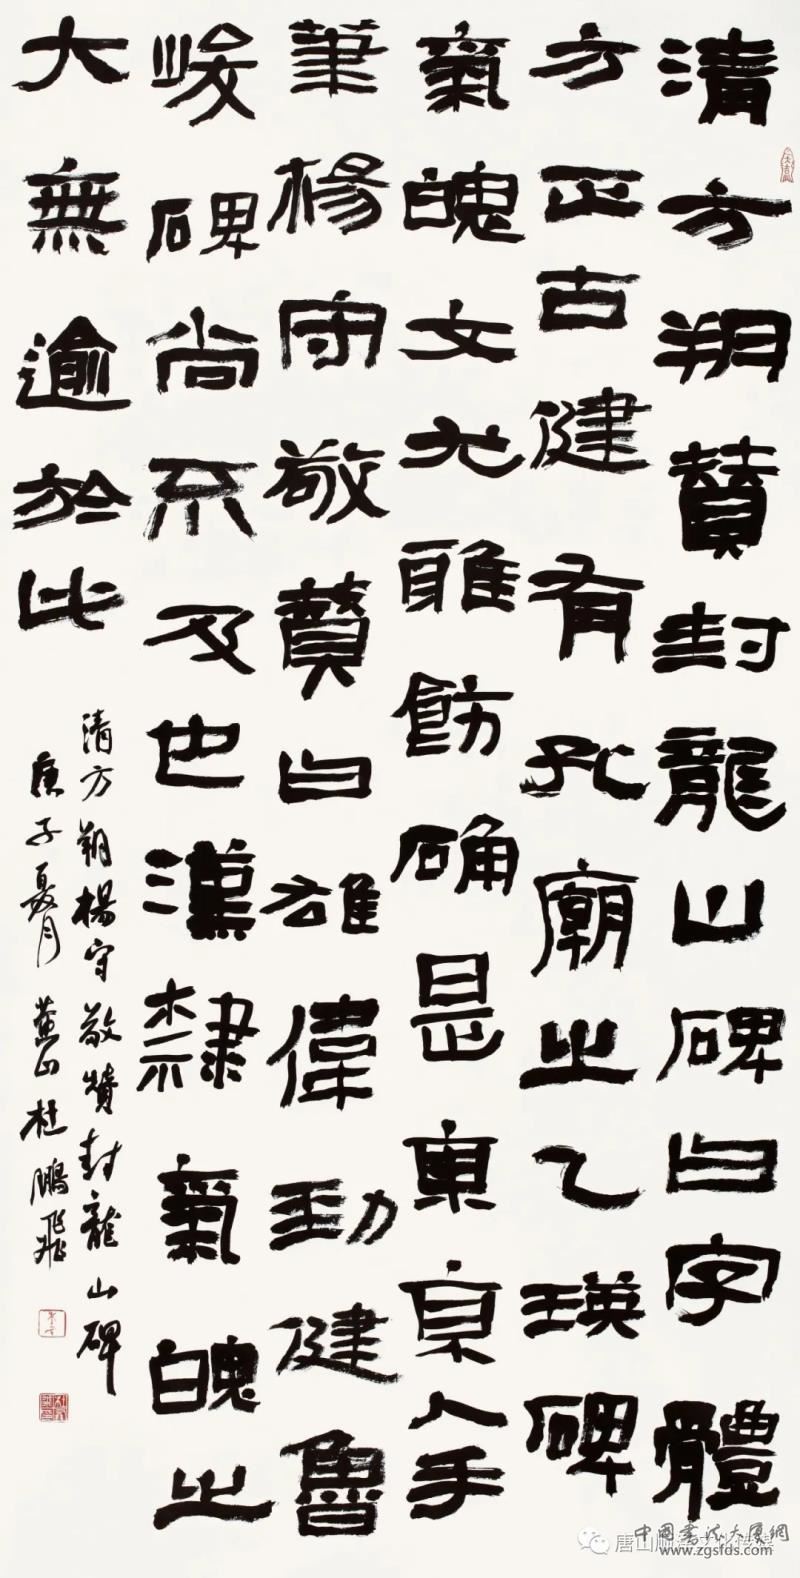 清方朔賛封龍山碑曰字體
方正古健有孔廟之乙瑛碑
氣魄文尤雅飭确是東京人手
筆楊守敬賛曰雄偉勁健魯
峻碑尚不及也漢隸氣魄之
大無逾於此
清方朔楊守敬贊封龍山碑
庚子夏月燕山杜鵬飛
中国書法大厦網
www.zgsfds.com
唐山